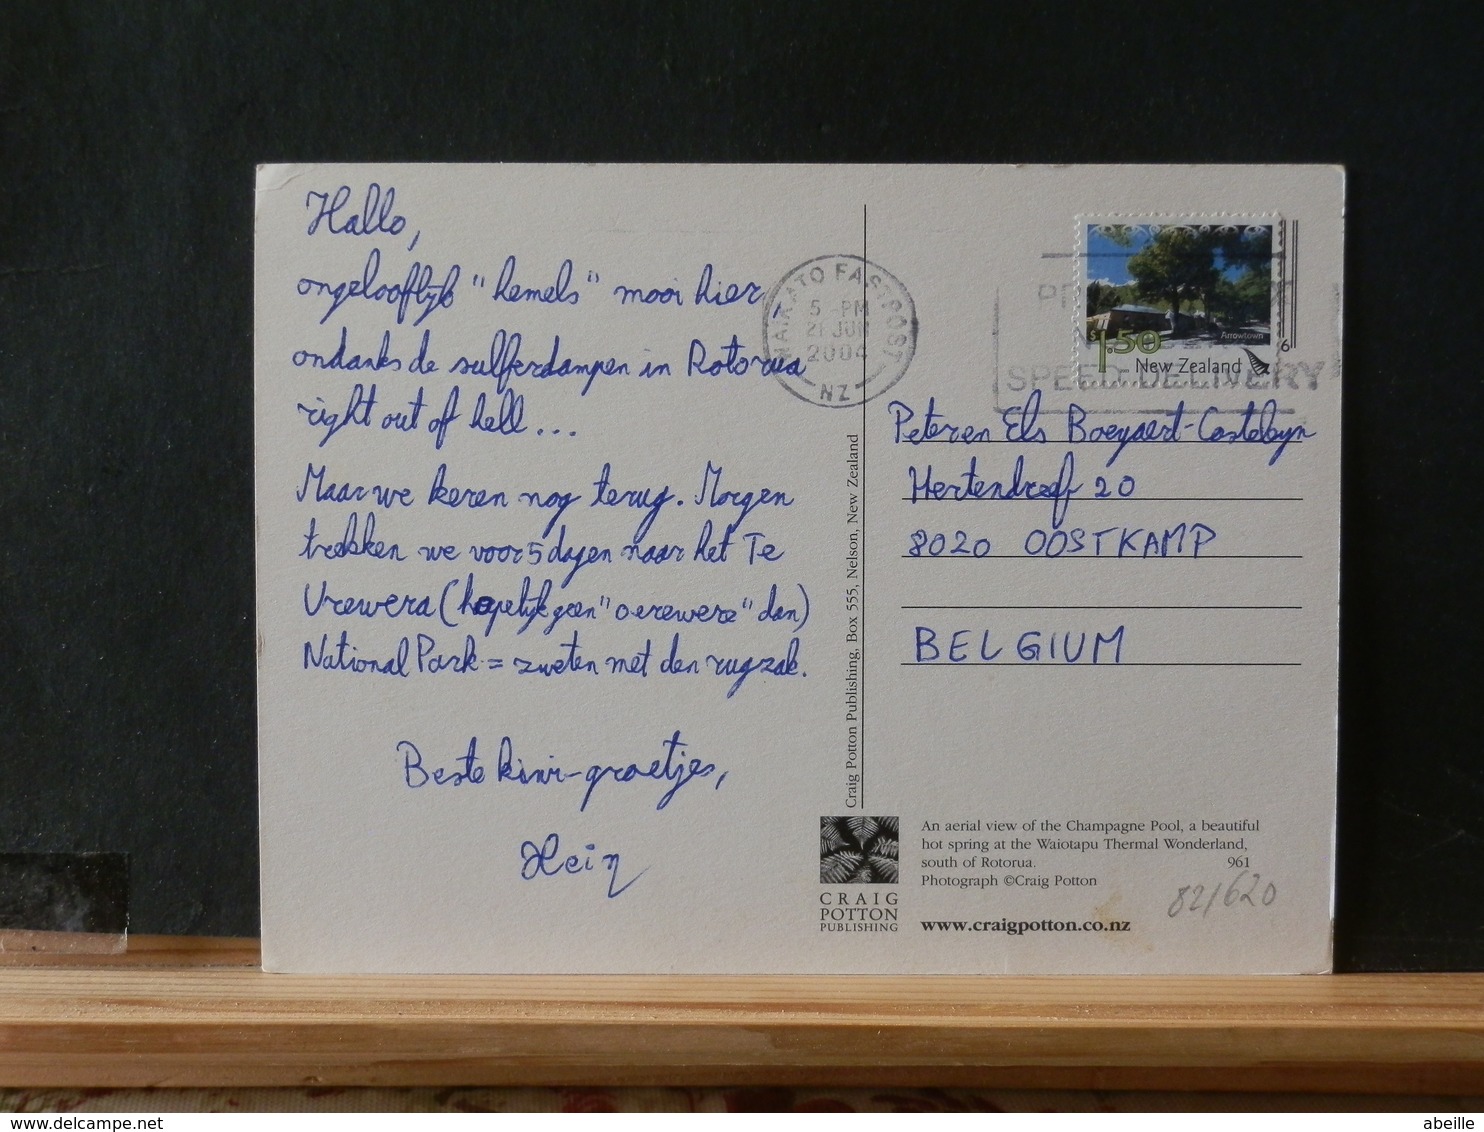 Hallo,
ongelooflijk "hemels" mooi hier
ondanks de sulferdampen in Rotorua
right out of hell...
Maar we keren nog terug. Morgen
trekken we voor 5 dagen naar het Te
Urewera (hopelijk geen "oerewere" dan)
National Park = zweten met den rugzak.
Beste kiwi-groetjes,
Hein
WAIKATO FASTPOST
5 -PM
21 JUN
2004
NZ
SPEED DELIVERY
Arrowtown
$1.50
New Zealand
6
Peter en Els Boeyaert-Castelayn
Hertendreef 20
8020 OOSTKAMP
BELGIUM
Craig Potton Publishing, Box 555, Nelson, New Zealand
An aerial view of the Champagne Pool, a beautiful
hot spring at the Waiotapu Thermal Wonderland,
south of Rotorua. 961
Photograph ©Craig Potton
82/620
CRAIG
POTTON
PUBLISHING
www.craigpotton.co.nz
delcampe.net
abeille